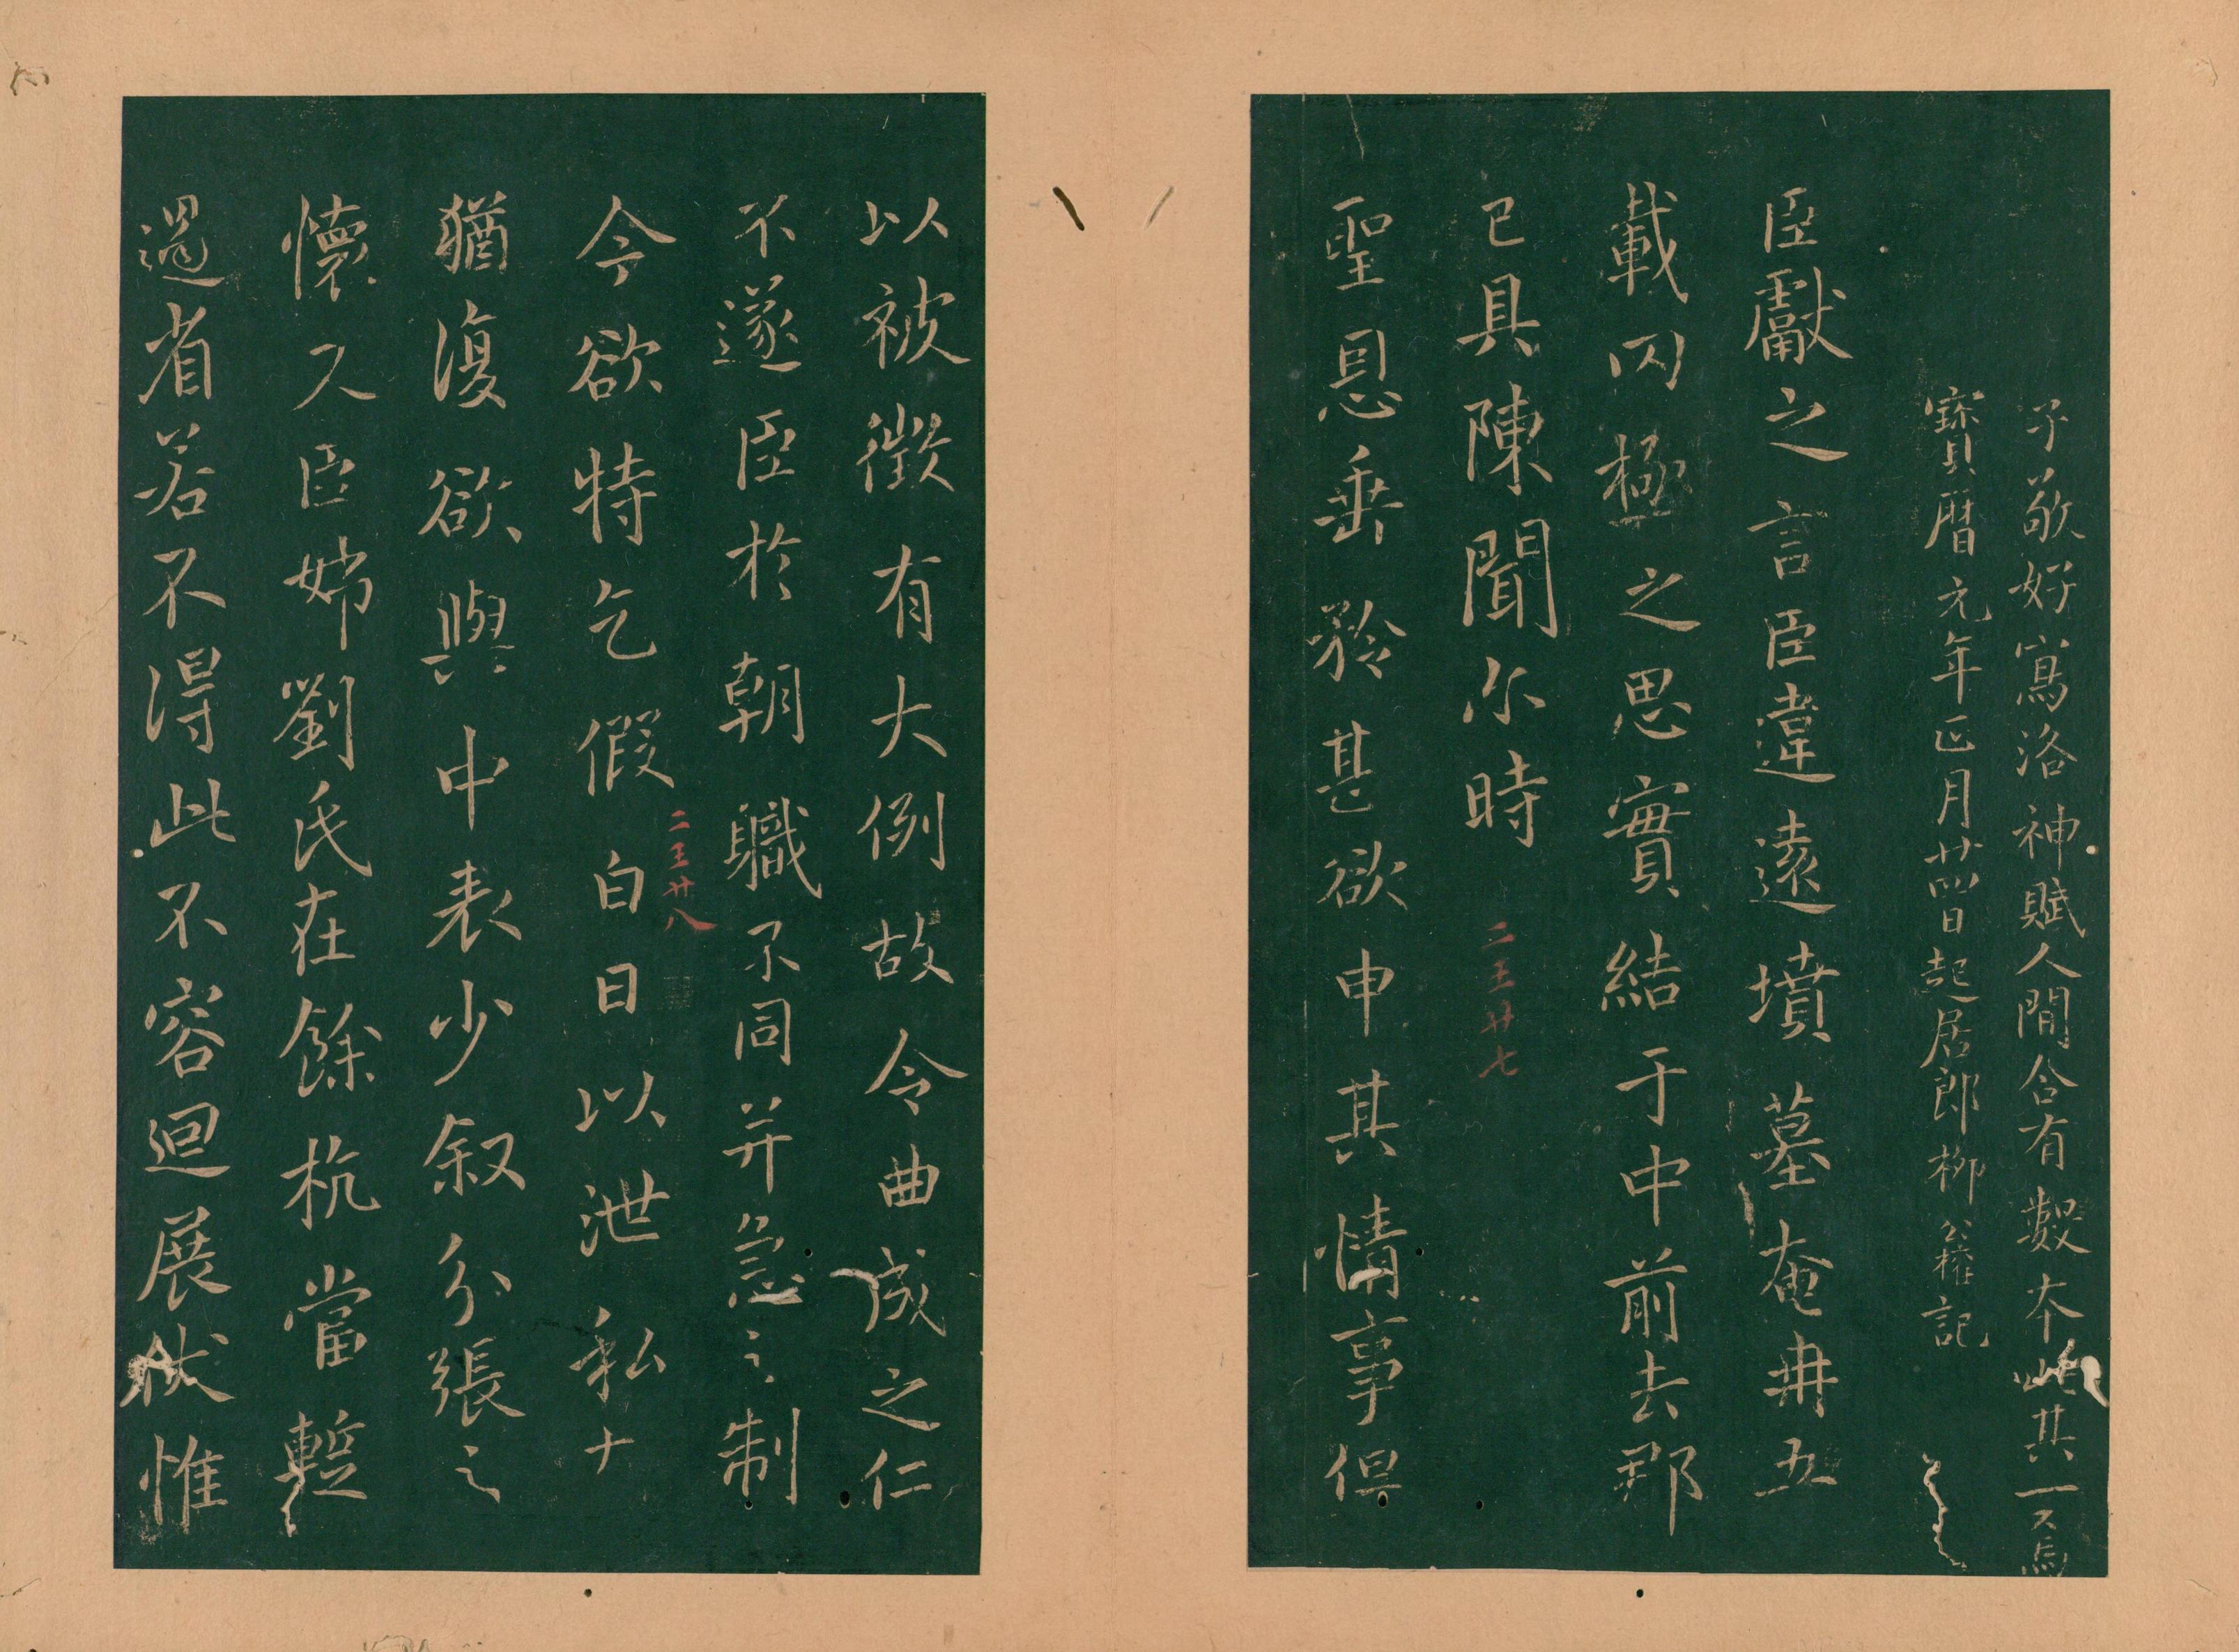 子敬好寫洛神賦人間合有數本此其一焉
寶曆元年正月廿四日起居郎柳公權記
臣獻之言臣違遠墳墓奄冉五
載罔極之思實結于中前去郡
已具陳聞尓時
二王廿七
聖恩垂矜甚欲申其情事但
以被徵有大例故令曲成之仁
不遂臣於朝職不同并急之制
二王廿八
今欲特乞假白日以泄私忄
猶復欲與中表少叙分張之
懷又臣姊劉氏在餘杭當蹔
過省若不得此不容迴展伏惟